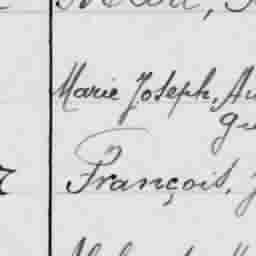 Marie Joseph, Au
gu
François, J